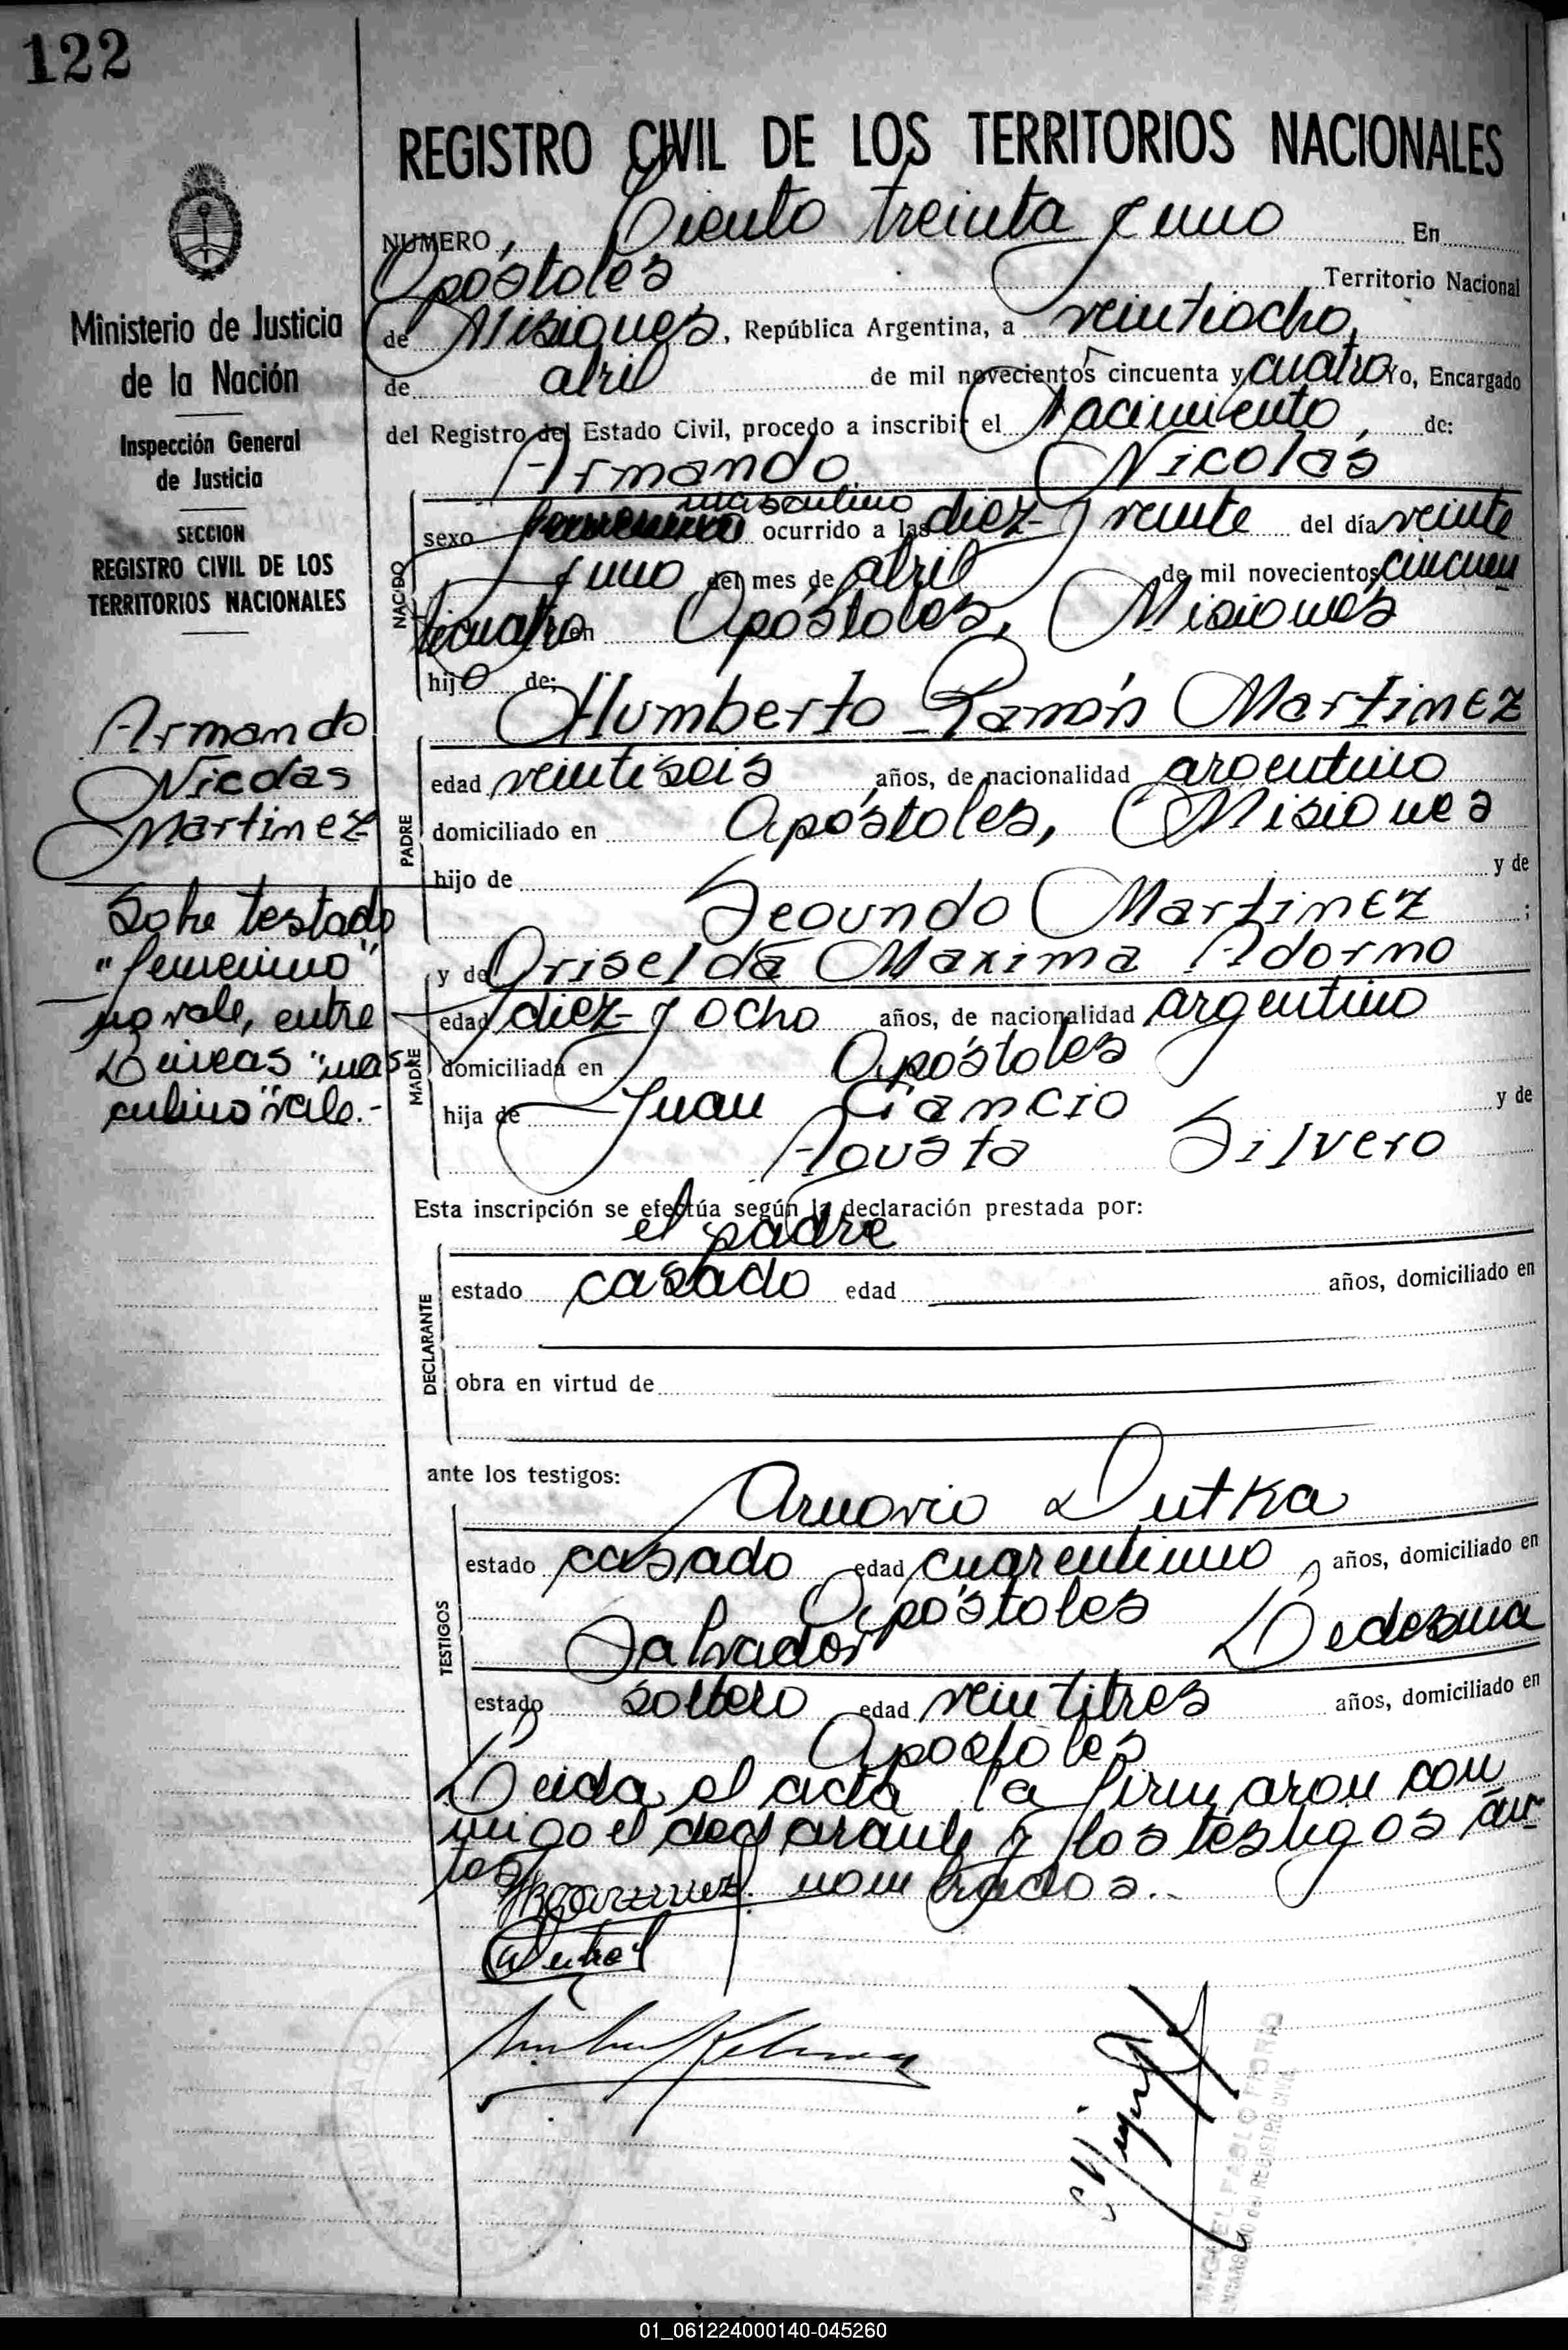 122
REGISTRO CIVIL DE LOS TERRITORIOS NACIONALES
NUMERO Ciento treinta y uno En
Apóstoles Territorio Nacional
de Misiones, República Argentina, a veintiocho,
de abril de mil novecientos cincuenta y cuatro Yo, Encargado
del Registro del Estado Civil, procedo a inscribir el Nacimiento, de:
Armando Nicolás
masculino
sexo femenino ocurrido a las diez y veinte del día veinte
y uno del mes de abril de mil novecientos cincuen
ticuatro en Apóstoles, Misiones
NACIDO
hijo de:
Humberto Ramón Martinez
edad veintiseis años, de nacionalidad argentino
domiciliado en Apóstoles, Misiones
PADRE
hijo de y de
Segundo Martinez ;
y de Griselda Maxima Adorno
edad diez y ocho años, de nacionalidad argentino
domiciliada en Apóstoles
MADRE
hija de Juan Cancio y de
Agusta Silvero
Esta inscripción se efectúa según la declaración prestada por:
el padre
estado casado edad años, domiciliado en
DECLARANTE
obra en virtud de
ante los testigos:
Dutka
estado casado edad cuarentiuno, años, domiciliado en
Apóstoles
Salvador Ledesma
TESTIGOS
estado soltero edad veintitres años, domiciliado en
Apostoles
Leida el acta la firmaron con
migo el declarante y los testigos an-
tes nombrados.-
Ministerio de Justicia
de la Nación
Inspección General
de Justicia
SECCION
REGISTRO CIVIL DE LOS
TERRITORIOS NACIONALES
Armando
Nicolas
Martinez
Sobre testado
"femenino"
no vale, entre
Lineas "mas
culino" vale.-
01_061224000140-045260